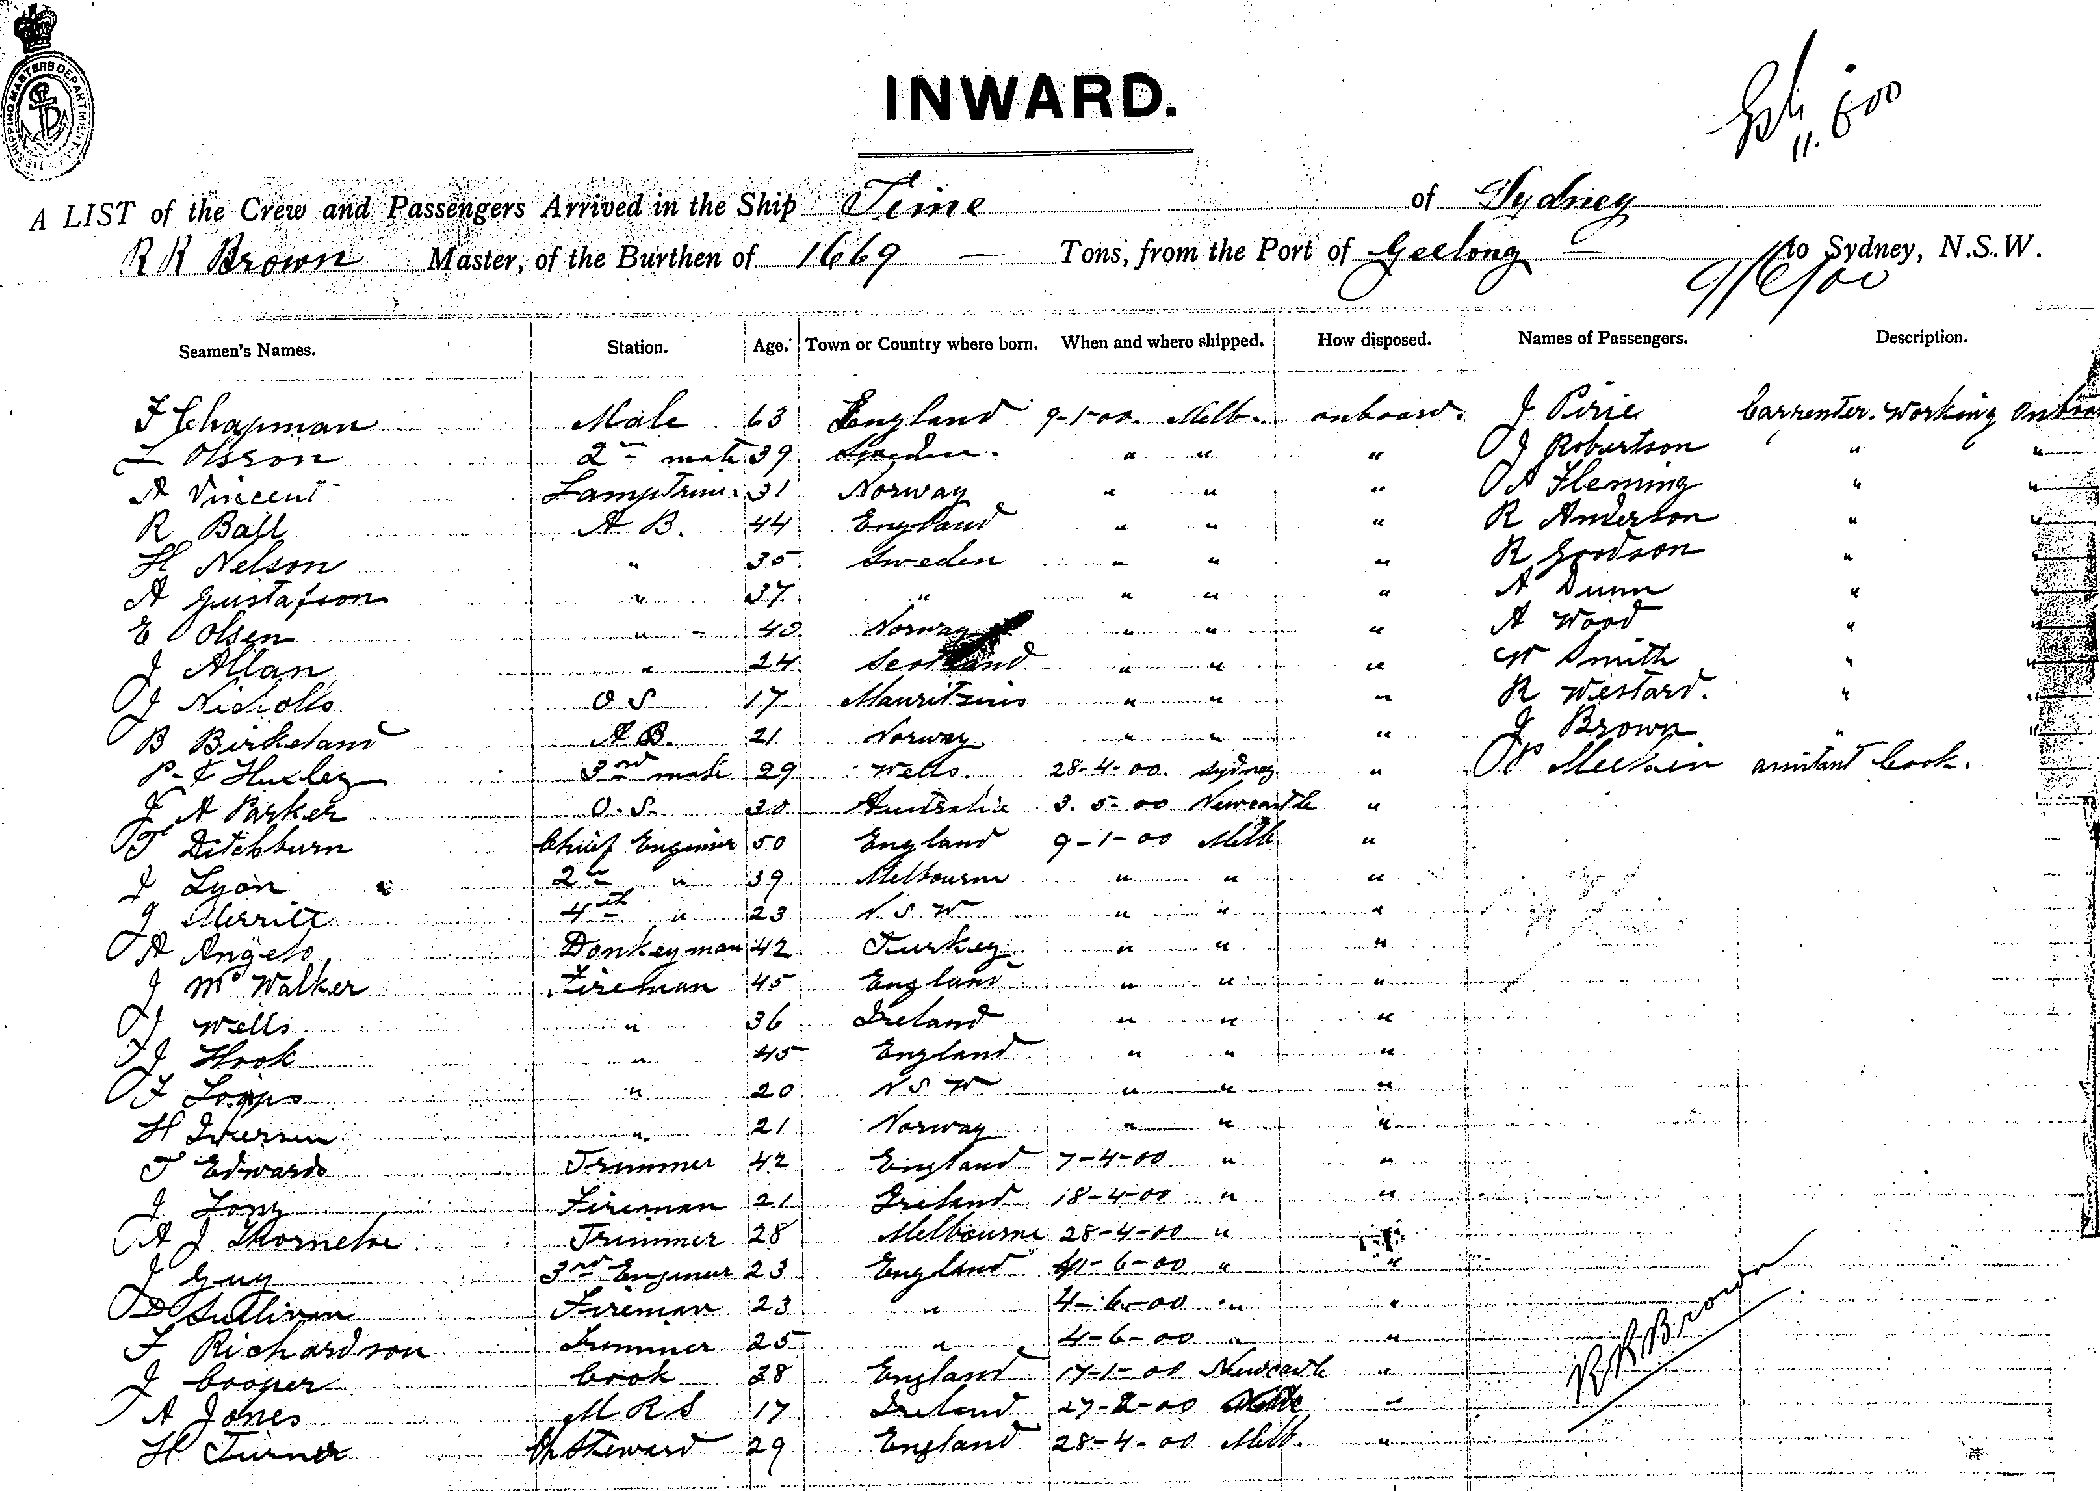 SHIPPING MASTERS DEPARTMENT
INWARD.
11.6.00
A LIST of the Crew and Passengers Arrived in the Ship Time of Sydney
R R Brown Master, of the Burthen of 1669 Tons, from the Port of Geelong to Sydney, N.S.W.
9/6/00
Seamen's Names. Station. Age. Town or Country where born. When and where shipped. How disposed. Names of Passengers. Description.
F Chapman Mate 63 England 9-1-00. Melb. onboard. J Pirie Carpenter. Working
Olsson 2 mate 39 Sweden. " " " J Robertson " "
A Vincent 31 Norway " " " A Fleming " "
R Ball A B. 44 England " " " R Anderson " "
H Nelson " 35 Sweden " " " R Goodson " "
A Gustafson " 37 " " " " A Dunn " "
E Olsen " 40 Norway " " " A Wood " "
J Allan " 24 Scotland " " " W Smith " "
J Nicholls O S 17 Mauritius " " " R Westard. " "
B Birkeland A B. 21 Norway " " " J Brown "
Huxley 3rd mate 29 Wells. 28-4-00. Sydney " P assistant Cook.
J A Parker O.S. 30 Australia 3. 5-00 Newcastle "
T Ditchburn Chief Engineer 50 England 9-1-00 Melb "
J Lyon 2 " 39 Melbourne " " "
J Merritt 4th " 23 N.S.W " " "
A Angelo Donkeyman 42 Turkey " " "
J Mc Walker Fireman 45 England " " "
J Wells " 36 Ireland " " "
J Hook " 45 England " " "
F " 20 N S W " " "
H " 21 Norway " " "
T Edwards Trimmer 42 England 7-4-00 " "
J Fireman 21 Ireland 18-4-00 " "
A J Trimmer 28 Melbourne 28-4-00 " "
J Guy 3rd Engineer 23 England 6-00 " "
D Sullivan Fireman 23 " 4-6-00 " "
F Richardson Trimmer 25 " 4-6-00 " "
J Cooper Cook 38 England 17-1-00 Newcastle "
A Jones M R S 17 Ireland 27-2-00 "
H Turner Ch Steward 29 England 28-4-00 Melb. "
R R Brown